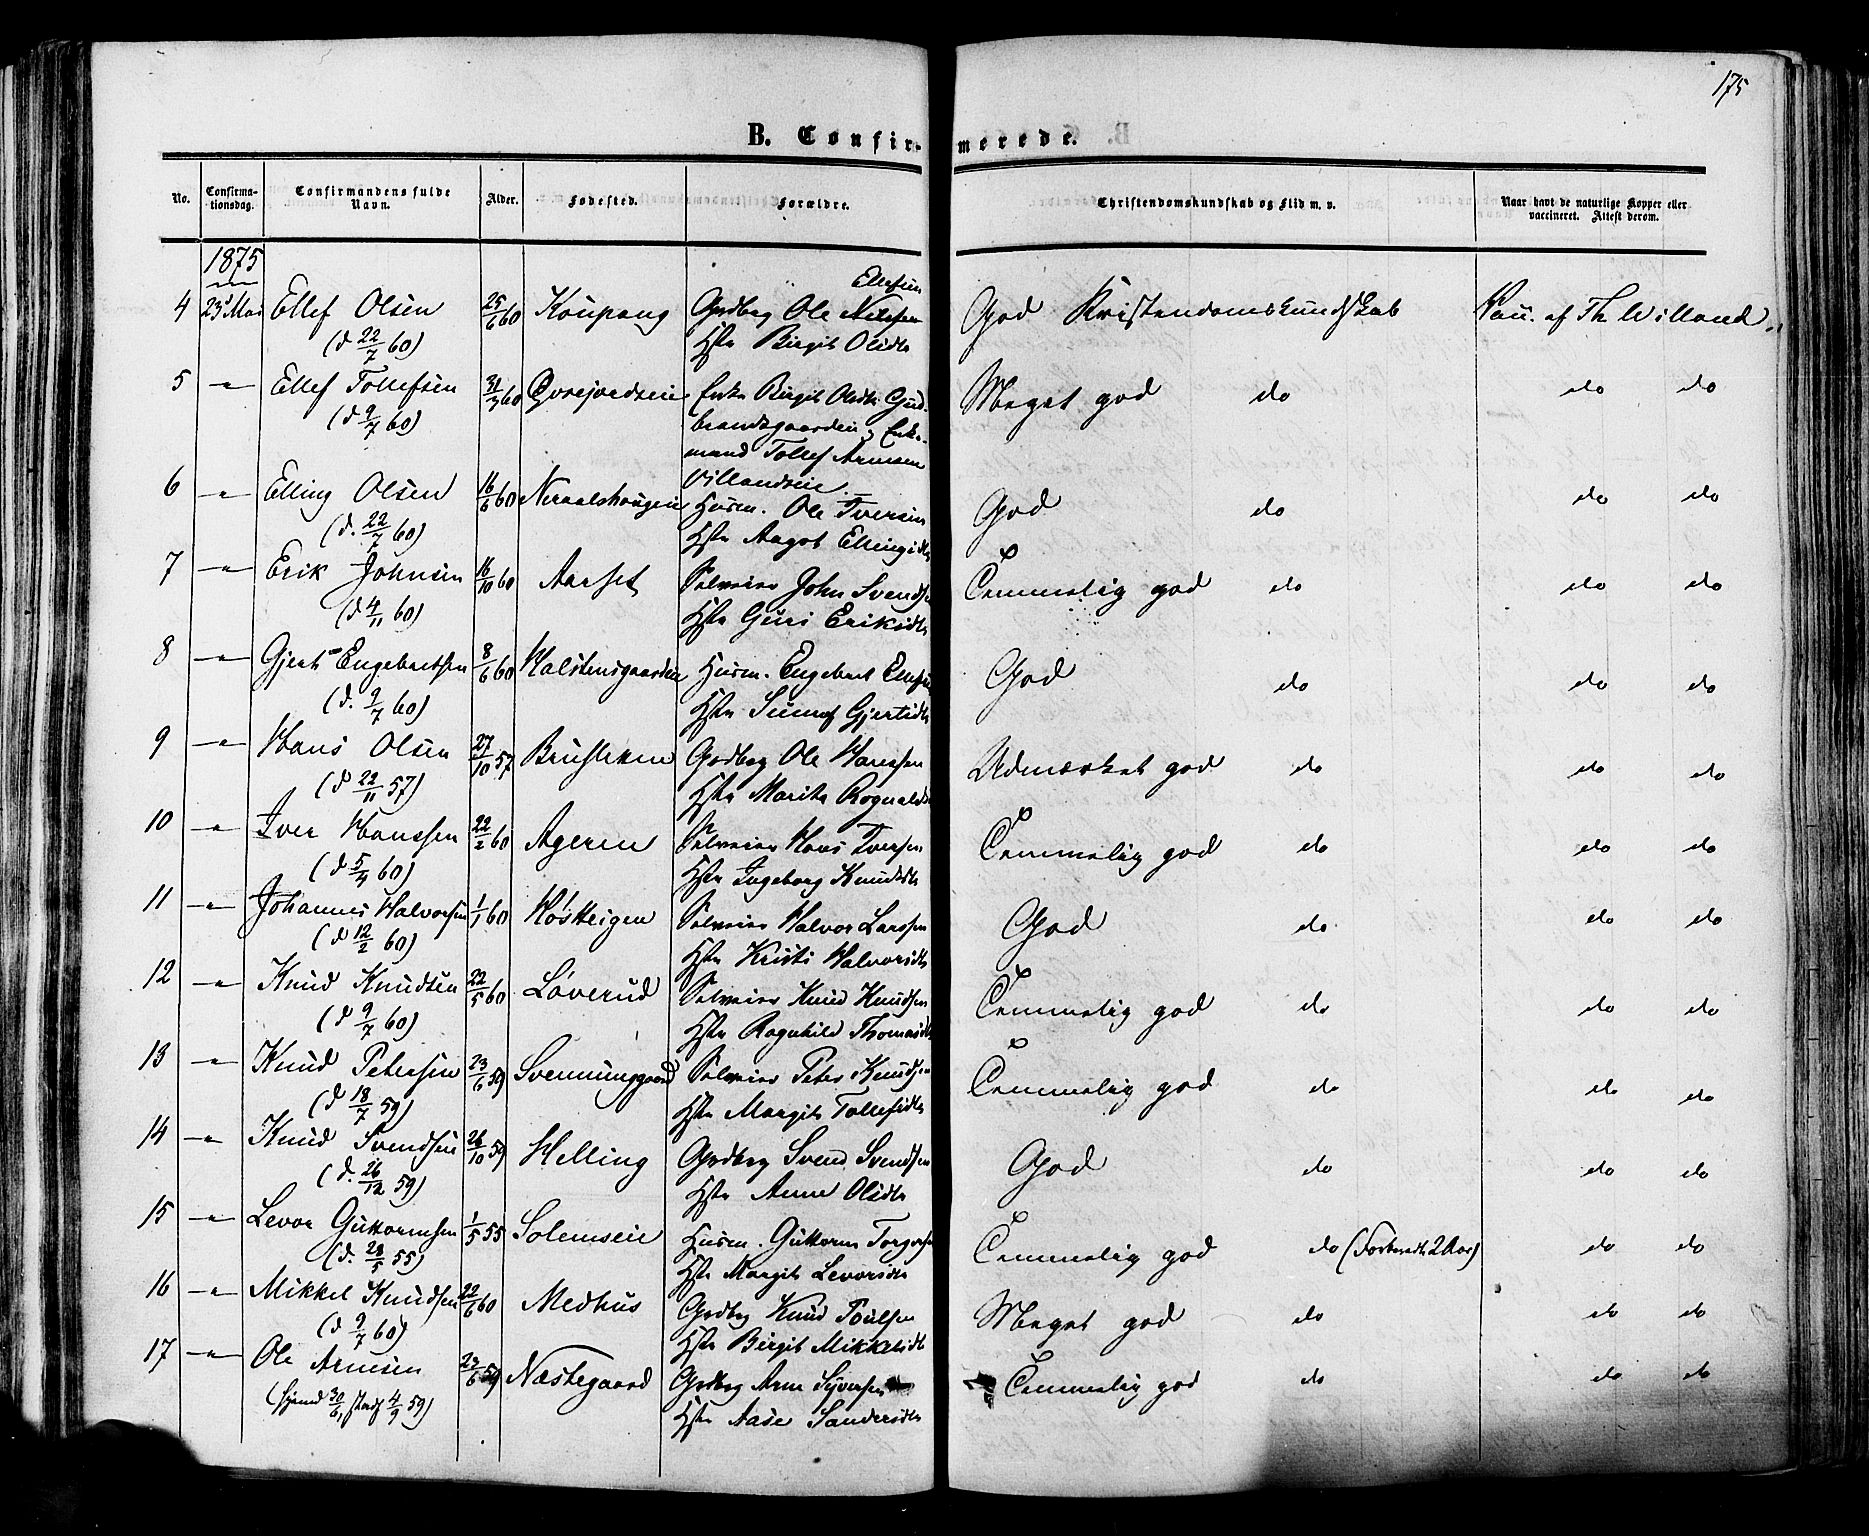 175
B. Confirmerede.
No. Confirmationsdag. Confirmandens fulde Navn. Alder. Fødested. Forældre. Christendomskundskab og Flid m. v. Naar havt de naturlige Kopper eller vaccineret. Attest derom.
1875
Ellefsen
4 23d Mai Ellef Olsen 25/6 60 Koupang Grdbrg Ole God Kristendomskundskab Vau. af Th Villand
(d 22/7 60) Hstr Birgit Olsdtr
5 -"- Ellef Tollefsen 31/3 60 Enke Birgit Olsdtr Gud- Meget god do do do
(d 9/7 60) brandsgaarden, Enke-
mand Tollef Arnesen
Villandseie
6 -"- Elling Olsen 16/6 60 Neraalshaugen Husm. Ole Iversen God do do do
(d. 22/7 60) Hstr Aagot Ellingsdtr
7 -"- Erik Johnsen 16/10 60 Aarset Selveier John Svendsen Temmelig god do do do
(d 4/11 60) Hstr Guri Eriksdtr
8 -"- Gjert Engebretsen 8/6 60 Halstensgaarden Husm. Engebret God do do do
(d. 9/7 60) Hstr Gjertsdtr
9 -"- Hans Olsen 27/10 57 Grdbrg Ole Hanssen Udmærket god do do do
(d 22/11 57) Hstr Marit Rognaldsdtr
10 -"- Iver Hanssen 22/2 60 Ageren Selveier Hans Iversen Temmelig god do do do
(d 5/4 60) Hstr Ingeborg Knudsdtr
11 -"- Johannes Halvorsen 1/1 60 Selveier Halvor Larssen God do do do
(d 12/2 60) Hstr Kristi Halvorsdtr
12 -"- Knud Knudsen 22/5 60 Løverud Selveier Knud Knudsen Temmelig god do do do
(d 9/7 60) Hstr Ragnhild Thomasdtr
13 -"- Knud Petersen 23/6 59 Svenkunggaard Selveier Peter Knudsen Temmelig god do do do
(d 18/7 59) Hstr Margit Tollefsdtr
14 -"- Knud Svendsen 26/10 59 Helling Grdbrg Svend Svendsen God do do do
(d. 26/12 59) Hstr Anne Olsdtr
15 -"- Levor Guttormsen 1/5 55 Solemseie Husm. Guttorm Torgersen Temmelig god do (Forberedt 2 Aar) do do
(d. 28/5 55) Hstr Margit Levorsdtr
16 -"- Mikkel Knudsen 22/6 60 Medhus Grdbrg Knud Poulsen Meget god do do do
(d 9/7 60) Hstr Birgit Mikkelsdtr
17 -"- Ole Arnesen 23/6 59 Næstegaard Grdbrg Arne Syversen Temmelig god do do do
(hjemd 30/6, stadf 4/9 59) Hstr Aase Sandersdtr